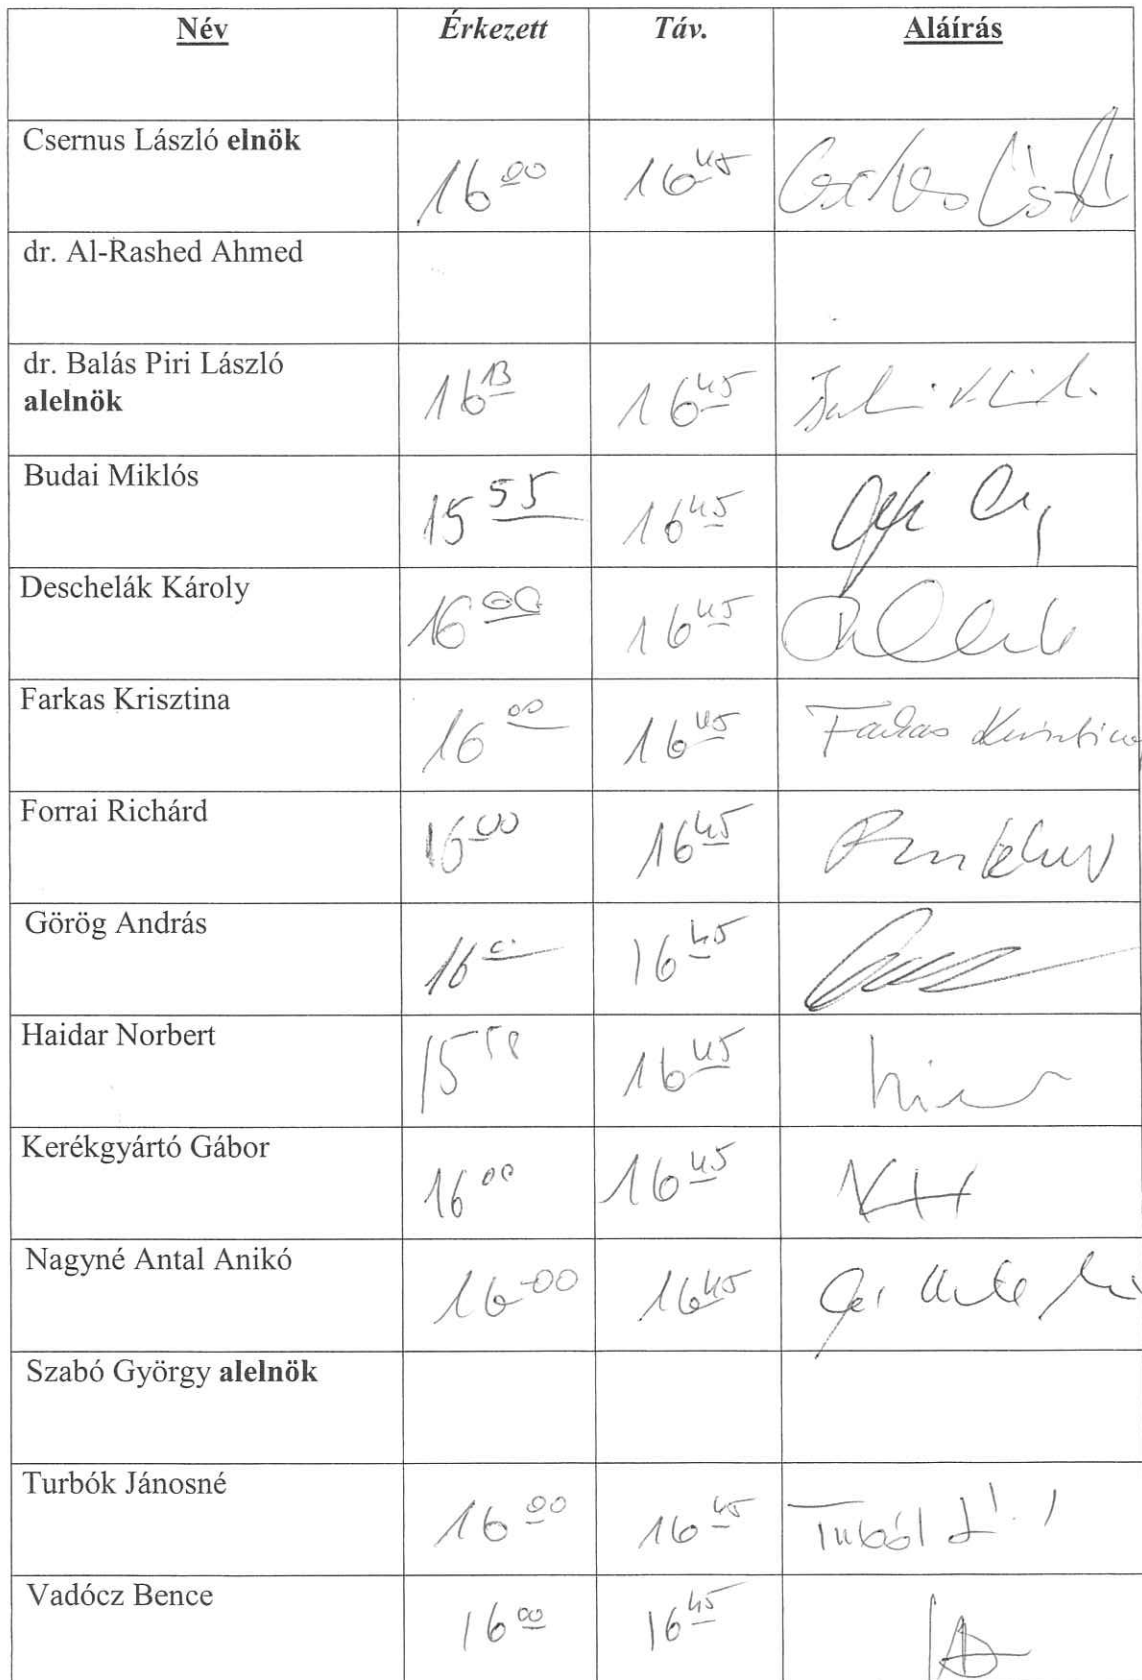 Név Érkezett Táv. Aláírás
Csernus László elnök
16 00 16 45
dr. Al-Rashed Ahmed
dr. Balás Piri László
alelnök
16 13 16 45
Budai Miklós
15 55 16 45
Deschelák Károly
16 00 16 45
Farkas Krisztina
16 00 16 45 Farkas Krisztina
Forrai Richárd
16 00 16 45
Görög András
16 16 45
Haidar Norbert
15 58 16 45
Kerékgyártó Gábor
16 00 16 45
Nagyné Antal Anikó
16 00 16 45
Szabó György alelnök
Turbók Jánosné
16 00 16 45
Vadócz Bence
16 00 16 45